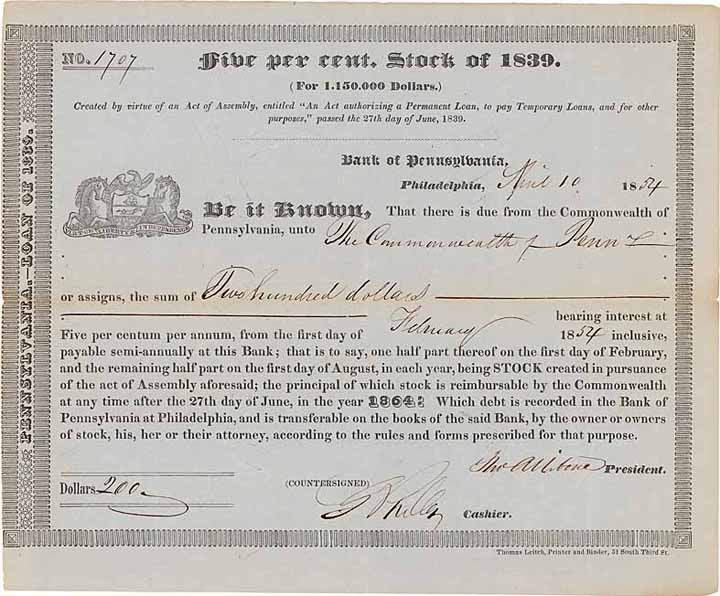 NO. 1707
Five per cent. Stock of 1839.
(For 1.150.000 Dollars.)
Created by virtue of an Act of Assembly, entitled "An Act authorizing a Permanent Loan, to pay Temporary Loans, and for other
purposes," passed the 27th day of June, 1839.
Bank of Pennsylvania,
Philadelphia, April 10 1854
Be it Known, That there is due from the Commonwealth of
Pennsylvania, unto The Commonwealth of Penn
VIRTUE LIBERTY INDEPENDENCE
or assigns, the sum of Two hundred dollars
bearing interest at
Five per centum per annum, from the first day of February 1854 inclusive,
payable semi-annually at this Bank; that is to say, one half part thereof on the first day of February,
and the remaining half part on the first day of August, in each year, being STOCK created in pursuance
of the act of Assembly aforesaid; the principal of which stock is reimbursable by the Commonwealth
at any time after the 27th day of June, in the year 1864: Which debt is recorded in the Bank of
Pennsylvania at Philadelphia, and is transferable on the books of the said Bank, by the owner or owners
of stock, his, her or their attorney, according to the rules and forms prescribed for that purpose.
Tho Allibone President.
Dollars 200
(COUNTERSIGNED)
Cashier.
Thomas Leitch, Printer and Binder, 51 South Third St.
PENNSYLVANIA.—LOAN OF 1839.